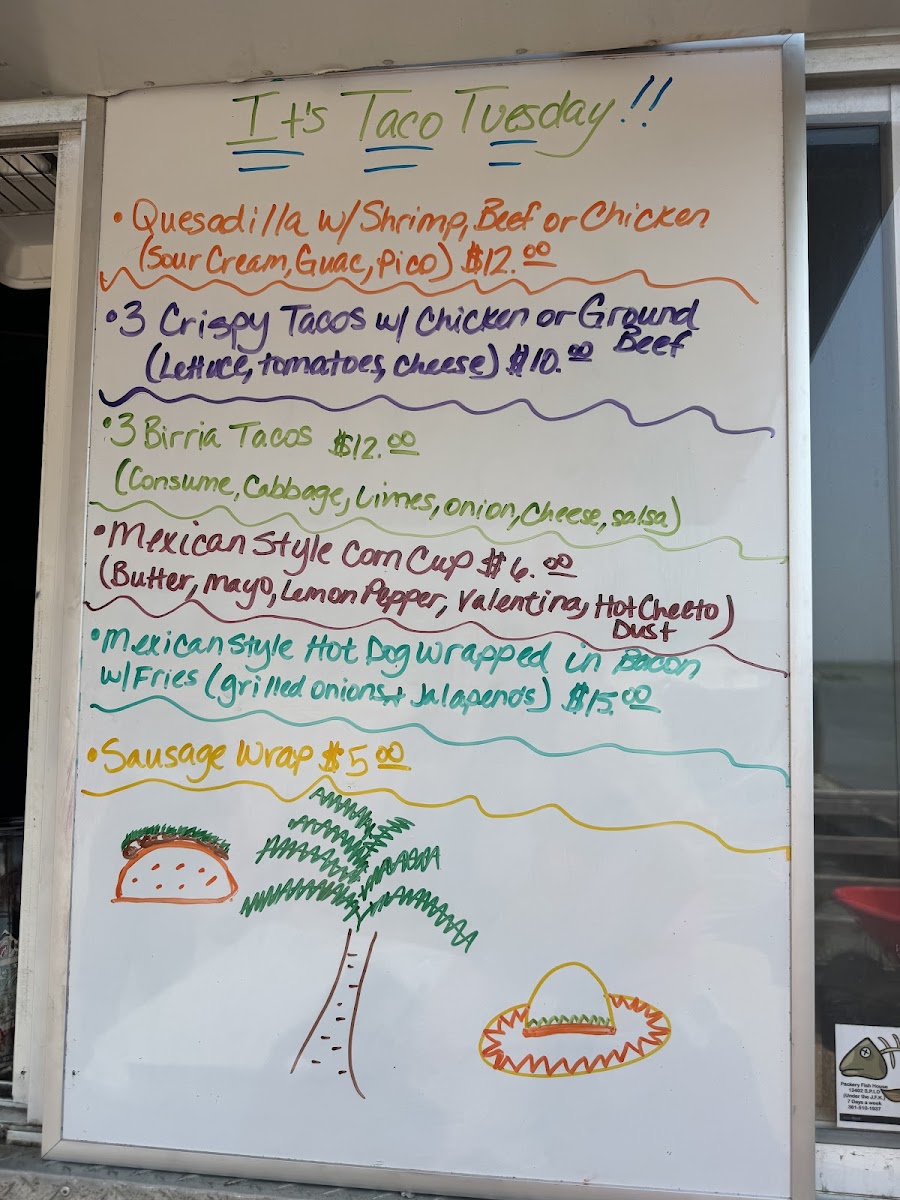 It's Taco Tuesday!!
• Quesadilla w/ Shrimp, Beef or Chicken
(Sour Cream, Guac, Pico) $12.00
• 3 Crispy Tacos w/ Chicken or Ground
Beef
(Lettuce, tomatoes, cheese) $10.00
• 3 Birria Tacos $12.00
(Consume, Cabbage, Limes, onion, Cheese, salsa)
• Mexican Style Corn Cup $6.00
(Butter, mayo, Lemon Pepper, Valentina, Hot Cheeto)
Dust
• Mexican Style Hot Dog wrapped in Bacon
w/ Fries (grilled onions + Jalapeno's) $15.00
• Sausage Wrap $5.00
Packery Fish House
(Under the J.F.K.)
7 Days a week